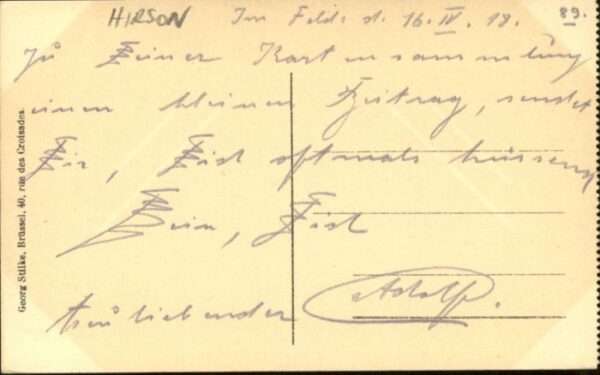 HIRSON Im Felde d. 16. IV. 18. 89.
Zu Deiner Kartensammlung
einen kleinen Beitrag, sendet
Dir, Dich oftmals küssend
Dein, Dich
treuliebender Adolf.
Georg Stilke, Brüssel, 40, rue des Croisades.